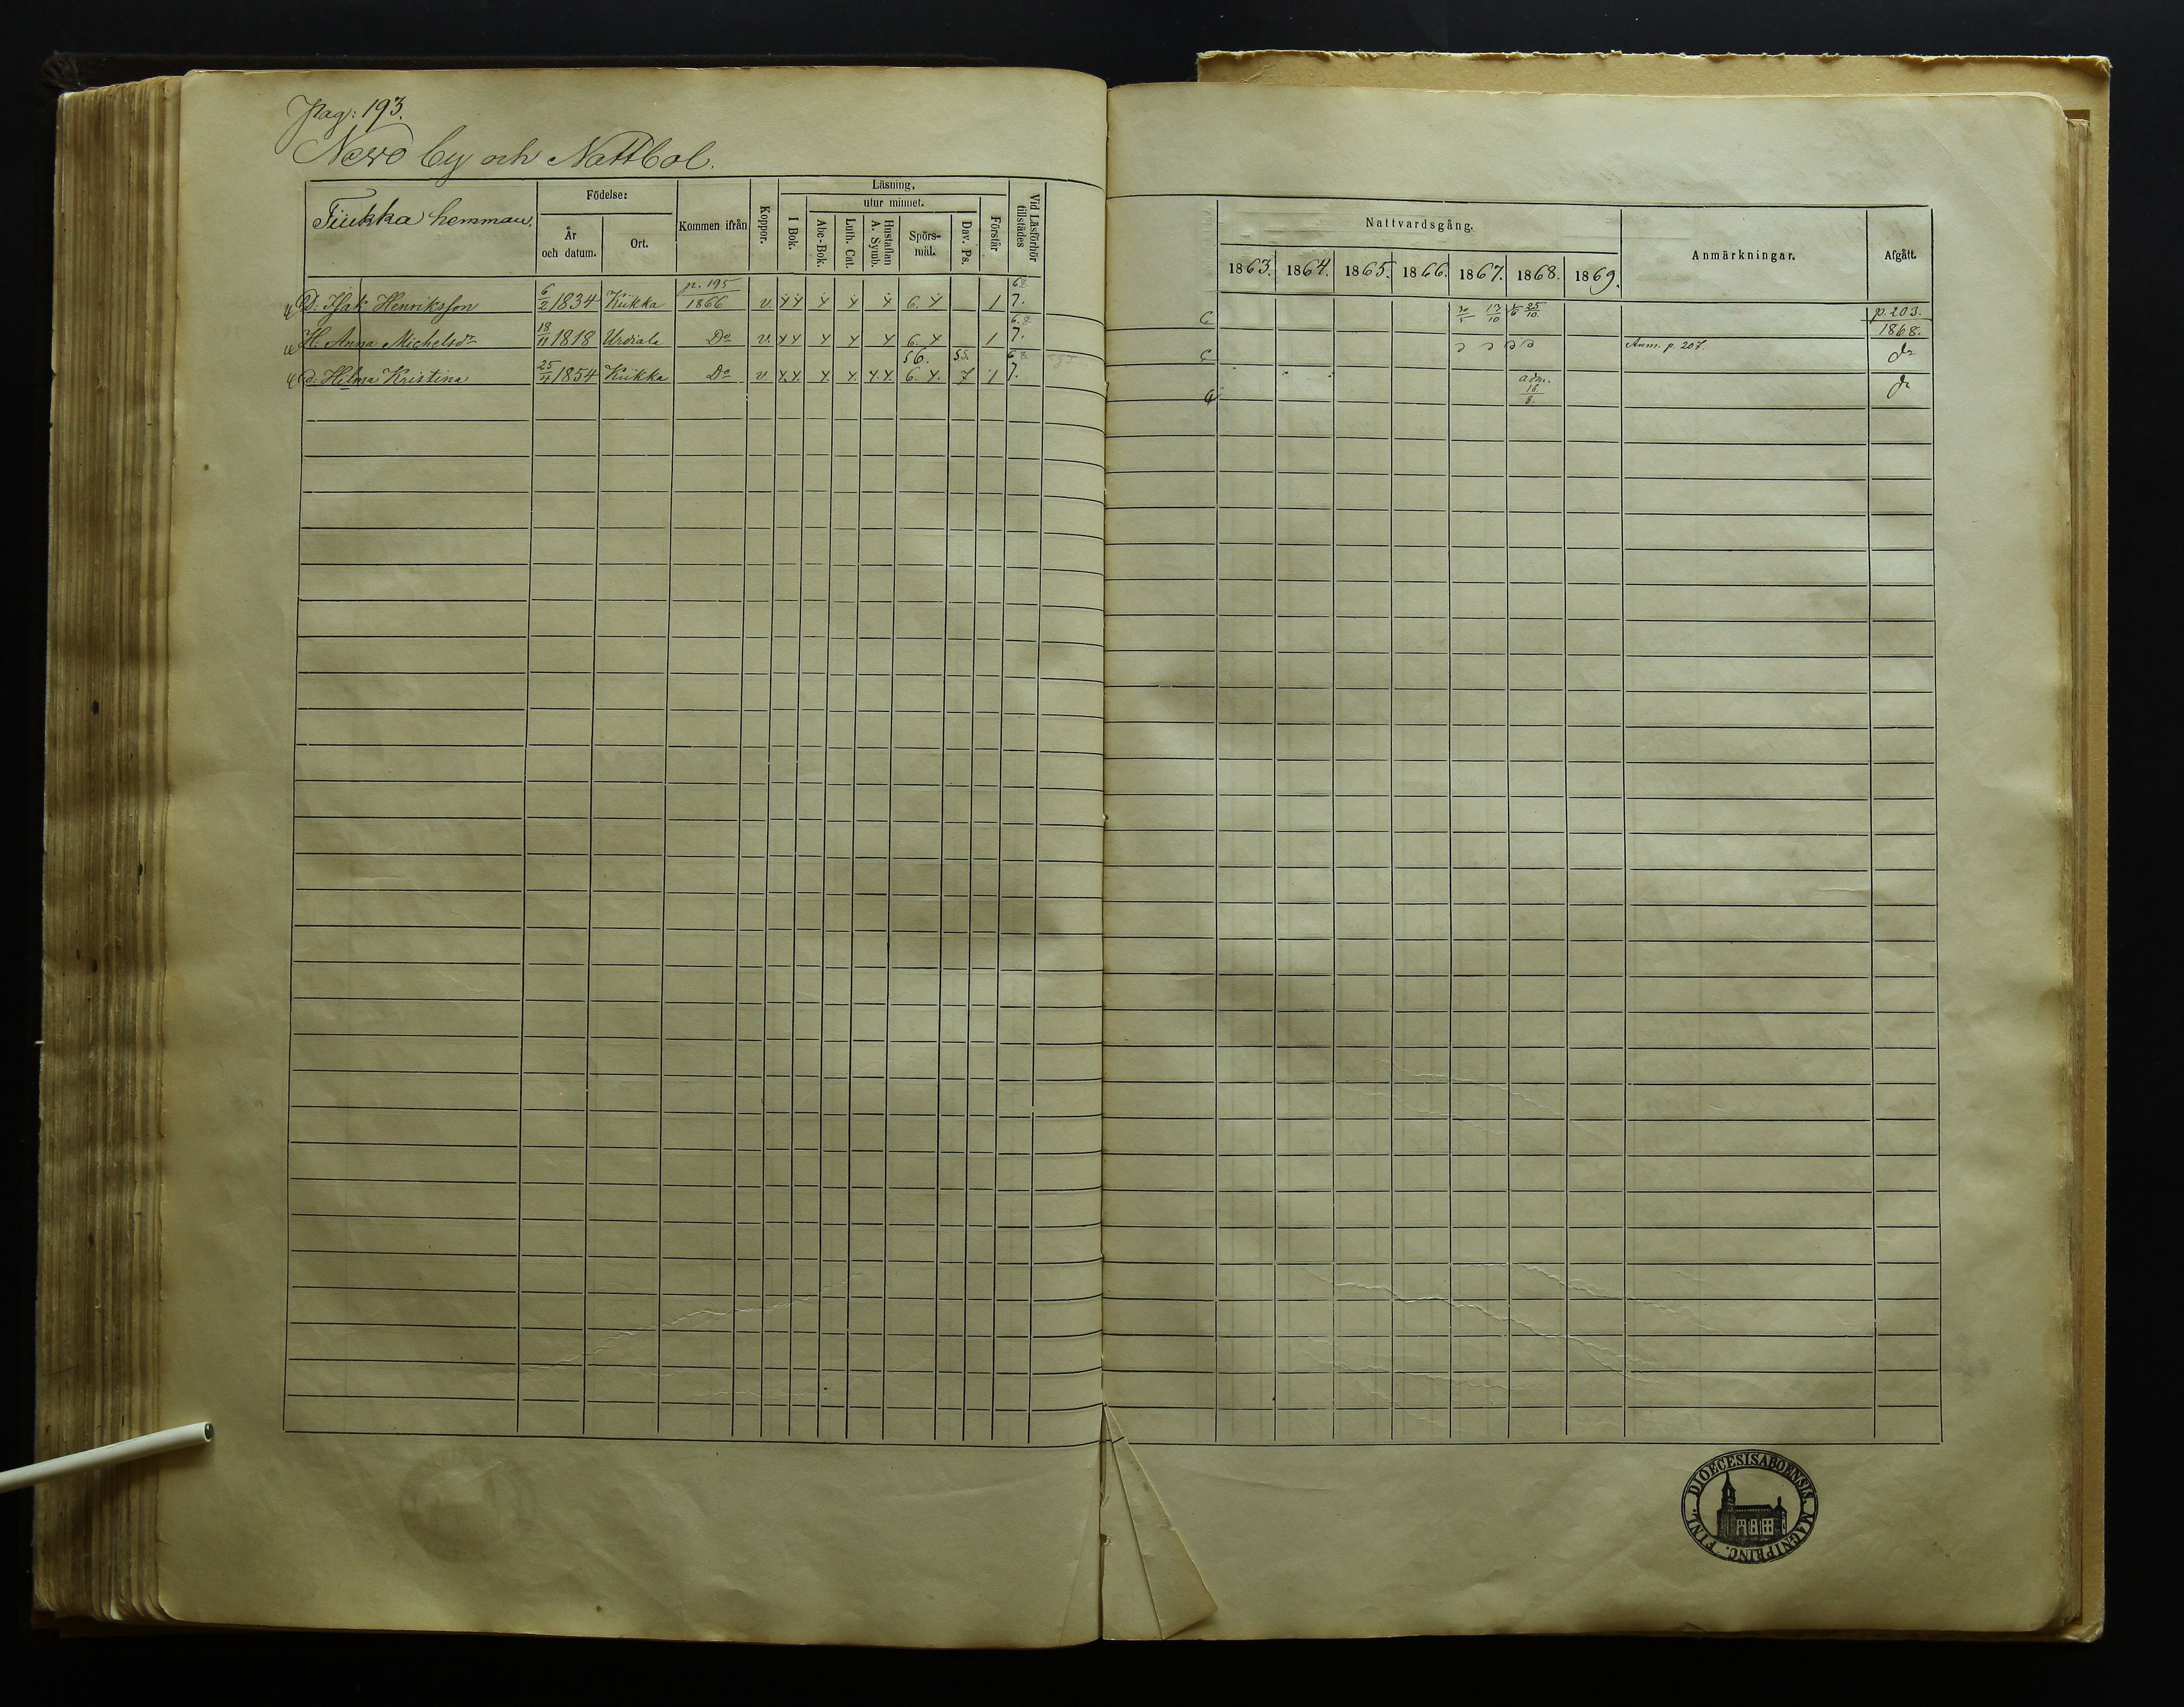 Pag: 193.
Newo by och Nattbol.
Tiukka hemman.
Födelse:
År och datum.
Ort.
Kommen ifrån
Koppor.
Läsning.
I Bok.
utur minnet.
Abc-Bok.
Luth. Cat.
Hustaflan A. Symb.
Spörsmål.
Dav. Ps.
Förstår
Vid Läsförhör tillstädes
Nattvardsgång.
1863. 1864. 1865. 1866. 1867. 1868. 1869.
Anmärkningar.
Afgått.
D: Isak Henriksson 6/2 1834 Kiikka p. 195 1866 v. 6. 1 68 7. 30/5 13/10 25/10 p. 203. 1868.
H: Anna Michelsdr 18/11 1818 Urdiala Do v. 6. 1 6.8. 7. Anm. p. 207. do
D: Hilma Kristina 25/4 1854 Kiikka Do v 56. 6. 55. 7 1 68 7. adm. 18/8. do
FINL. DIOECESIS ABOENSIS. MAGNI PRINC.